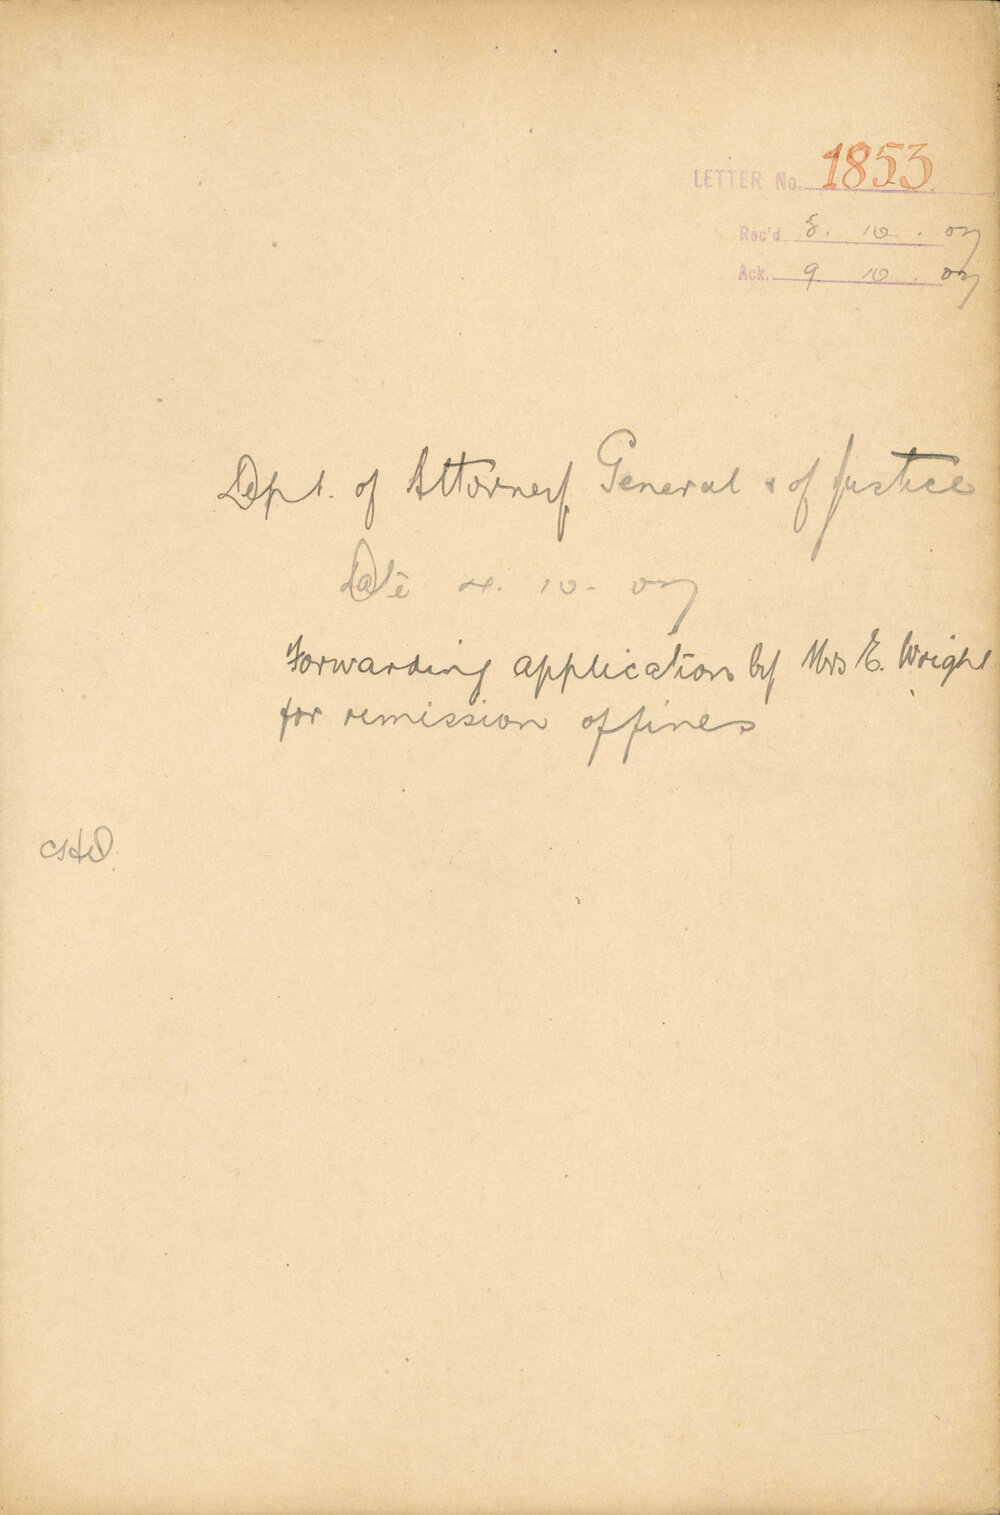 LETTER No. 1853.
Rec'd 8. 10. 07
Ack. 9 10. 07
Dept. of Attorney General & of Justice
Date 4. 10. 07
Forwarding application by Mrs E. Wright
for remission of fines